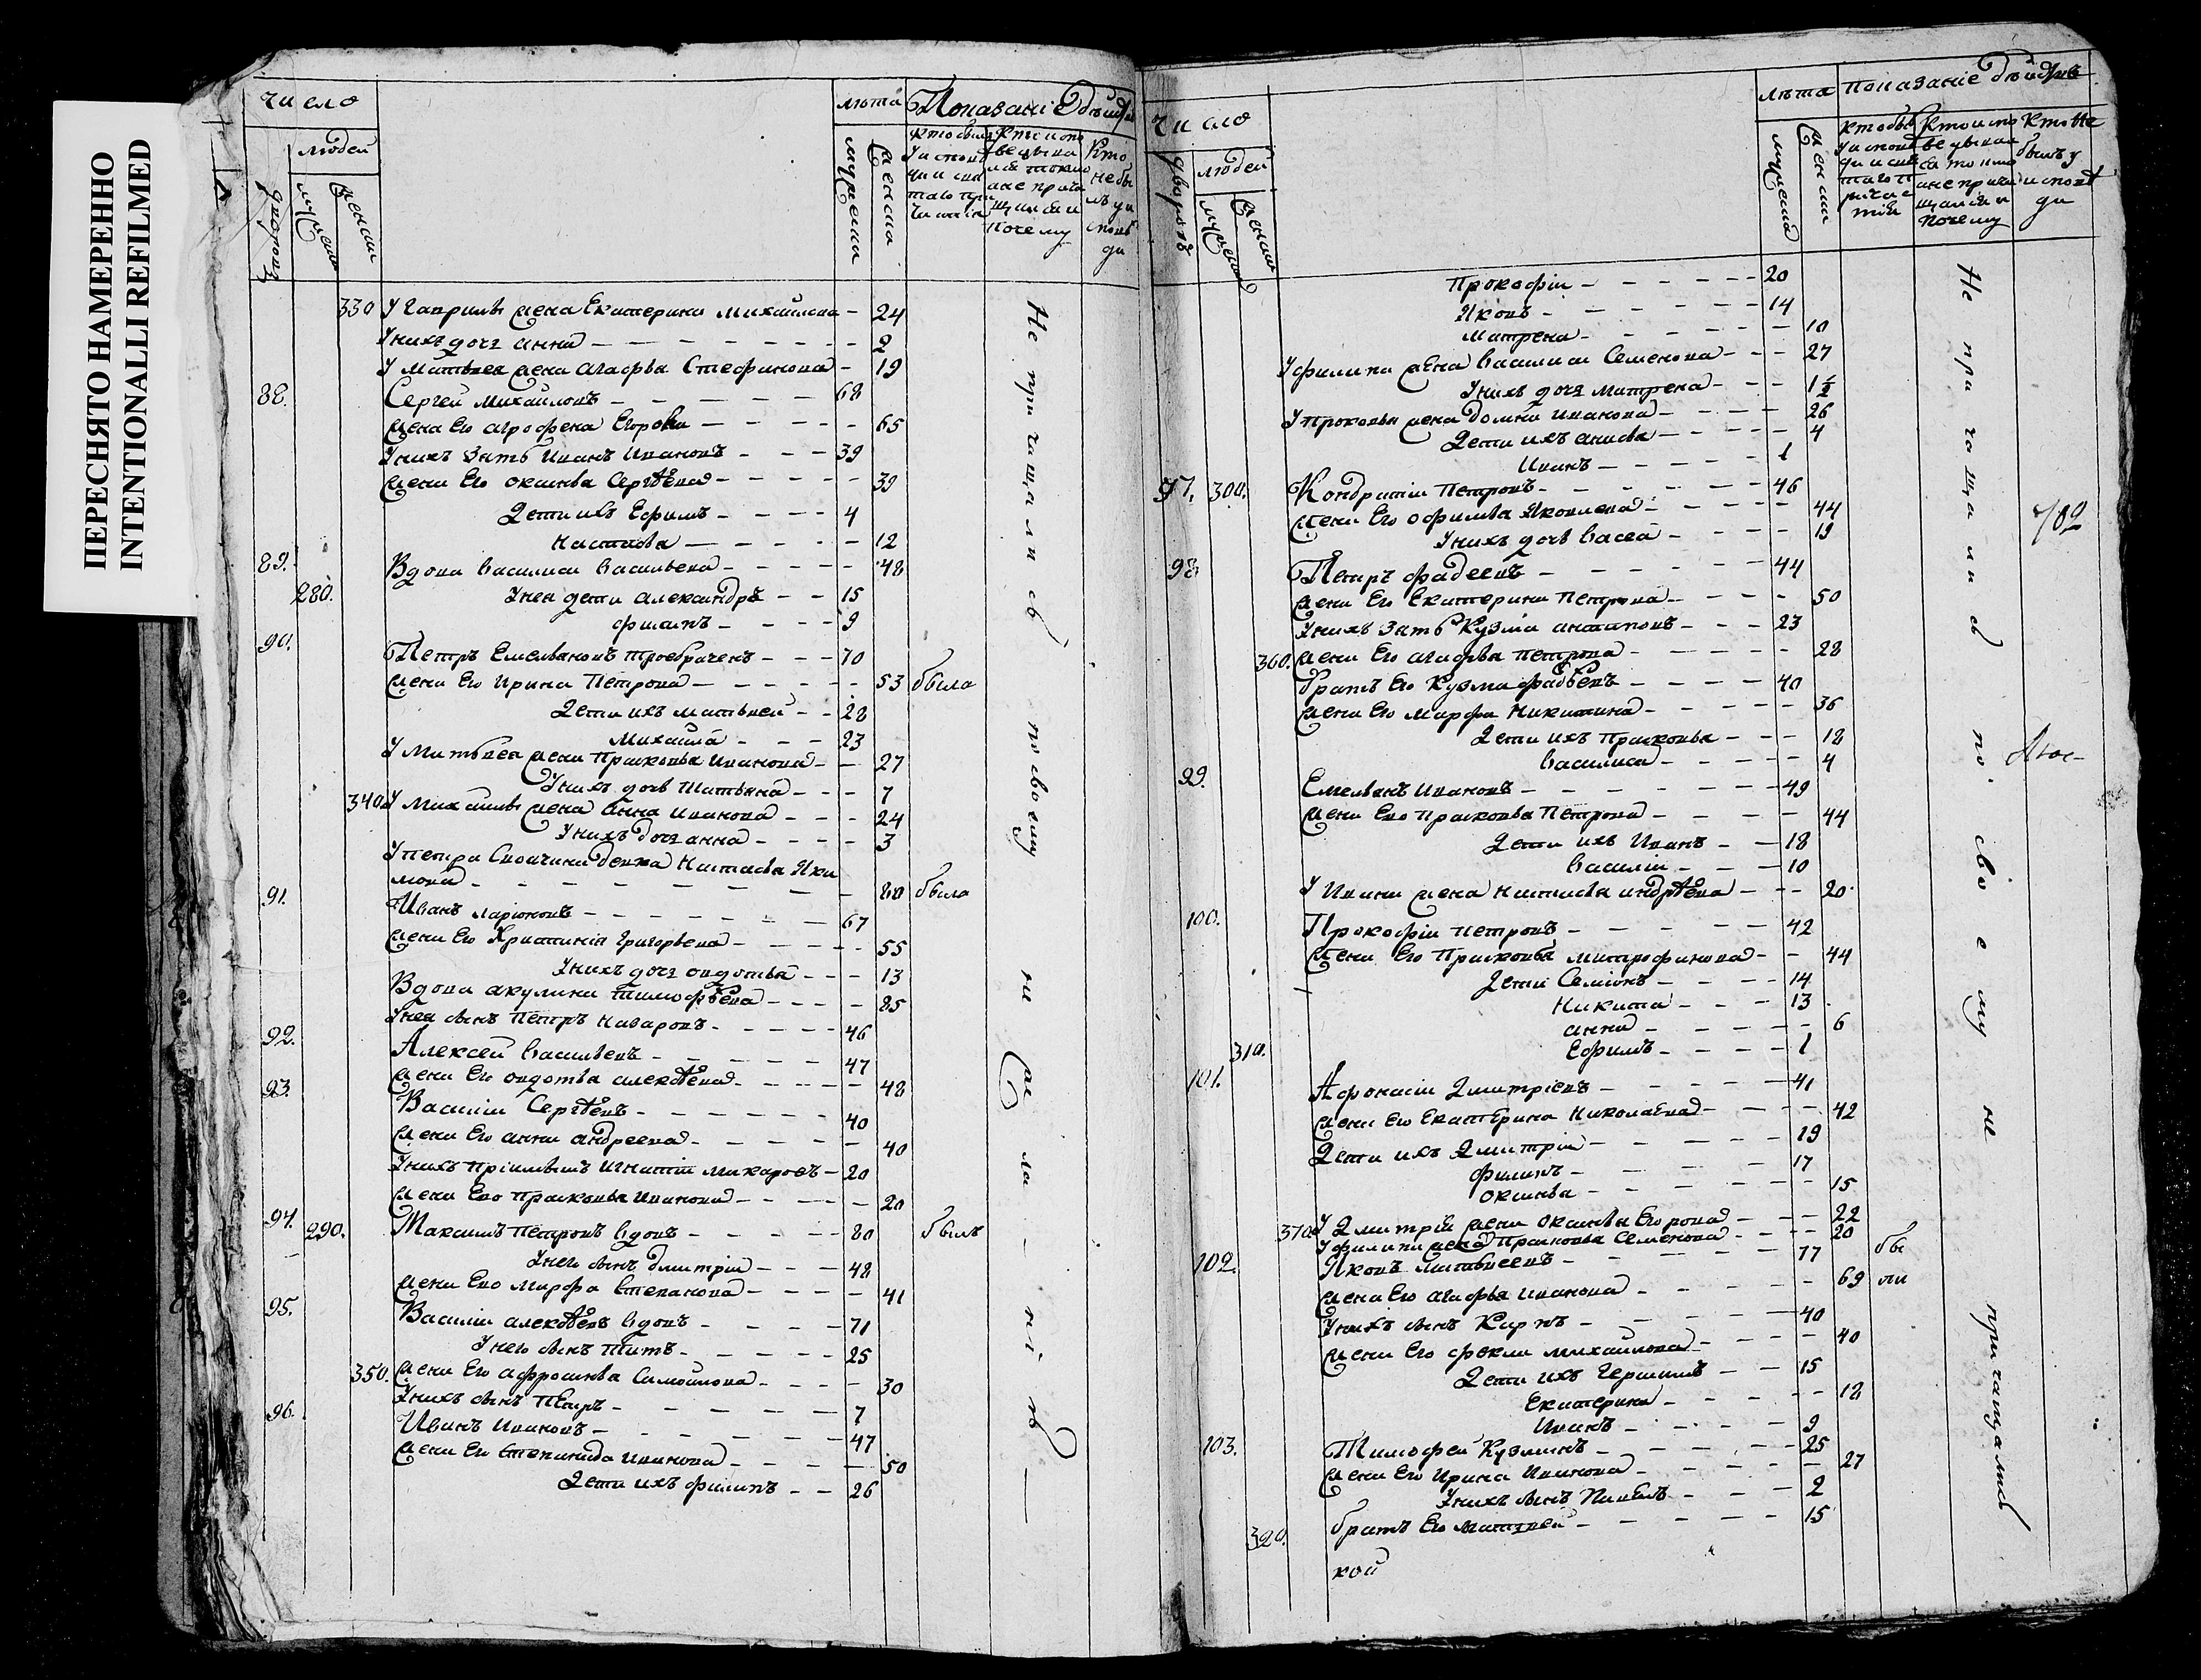 ПЕРЕСНЯТО НАМЕРЕННО
INTENTIONALLI REFILMED
число
людей
лѣта
Показаніе
мужеска
женска
330 У Гаврилы жена Екатерина Михайлова 24
У нихъ дочь анна 2
У Матвея жена агафья Стефанова 19
88. Сергей Михайловъ 68
жена Его агрофена Егорова 65
У нихъ зять Иванъ Ивановъ 39
жена Его оксинья Сергѣева 39
Дети ихъ Ефимъ 4
Настасья 12
89. Вдова василиса васильева 48
280. У нея дети александръ 15
филипъ 9
90. Петръ Емельяновъ троебраченъ 70
жена Его Ирина Петрова 53 была
Дети ихъ матьвей 28
Михайла 23
У Матьвея жена Прасковья Иванова 27
У нихъ дочь Татьяна 7
340 У Михайлы жена анна Иванова 24
У нихъ дочь анна 3
У петра Своячина девка Настасья Яки
мова 80 была
91. Иванъ ларионовъ 67
жена Его Христинія григорьева 55
У нихъ дочь овдотья 13
Вдова акулина тимофѣева 85
У нея сынъ Петръ назаровъ 46
92. Алексей васильевъ 47
жена Его овдотья алексѣева 48
93. Василій Сергѣевъ 40
жена Его анна андреева 40
У нихъ пріимышъ Игнатій макаровъ 20
жена Ево прасковья Иванова 20
94. 290. Максимъ Петровъ вдовъ 80 былъ
У него сынъ дмитрій 48
жена Ево марфа Степанова 41
95. Василій алексѣевъ вдовъ 71
У него сынъ титъ 25
350. жена Его афросинья Самойлова 30
У нихъ сынъ Петръ 7
96. Иванъ Ивановъ 47
жена Его Степанида Иванова 50
Дети ихъ филипъ 26
Не причащались по своему не желанію
число
людей
лѣта
показаніе
мужеска
женска
Прокофій 20
Яковъ 14
Матрена 10
У филипа жена василиса Семенова 27
У нихъ дочь матрена 1½
У прокофья жена домна Иванова 26
Дети ихъ анисья 4
Иванъ 1
97. 300. Кондратій Петровъ 46
жена Его офимья Яковлева 44
У нихъ дочь васса 19
98 Петръ фадеевъ 44
жена Его Екатерина Петрова 50
У нихъ зять Кузма антиповъ 23
360. жена Его агафья петрова 28
братъ Его Кузма фадѣевъ 40
жена Его марфа Никитина 36
Дети ихъ прасковья 18
василиса 4
99. Емельянъ Ивановъ 49
жена Ево прасковья Петрова 44
Дети ихъ Иванъ 18
василій 10
У Ивана жена настасья андрѣева 20
100. Прокофій петровъ 42
жена Его Прасковья митрофанова 44
Дети Семіонъ 14
Никита 13
анна 6
310. Ефимъ 1
101. Афонасій Дмитріевъ 41
жена Его Екатерина Николаева 42
Дети ихъ Дмитрій 19
филипъ 17
оксинья 15
370 У Дмитрія жена оксинья Егорова 22
У филипа жена прасковья Семенова 20
102. Яковъ матвѣевъ 77 бы
жена Его агафья Иванова 69 ли
У нихъ сынъ Карпъ 40
жена Его фекла михайлова 40
Дети ихъ Герасимъ 15
Екатерина 18
Иванъ 9
103. Тимофей Кузминъ 25
жена Его Ирина Иванова 27
У нихъ сынъ Павелъ 2
320. братъ Его матвей 15
кой
Не причащались по своему не
причащались